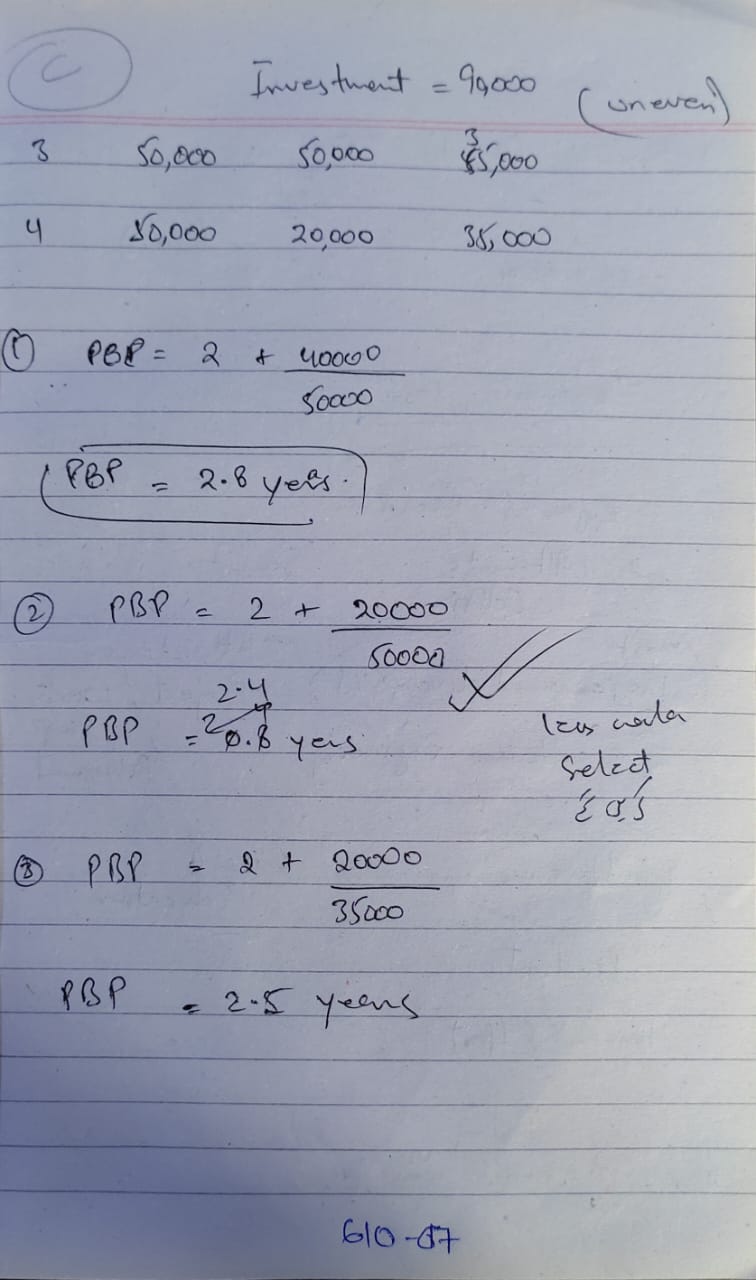 C
Investment = 90,000 (uneven)
3 50,000 50,000 35,000
4 50,000 20,000 35,000
① PBP = 2 + 40000
50000
PBP = 2.8 years.
② PBP = 2 + 20000
50000
2.4
PBP = 0.8 years
less wala
select
③ PBP = 2 + 20000
35000
PBP = 2.5 years
610-07